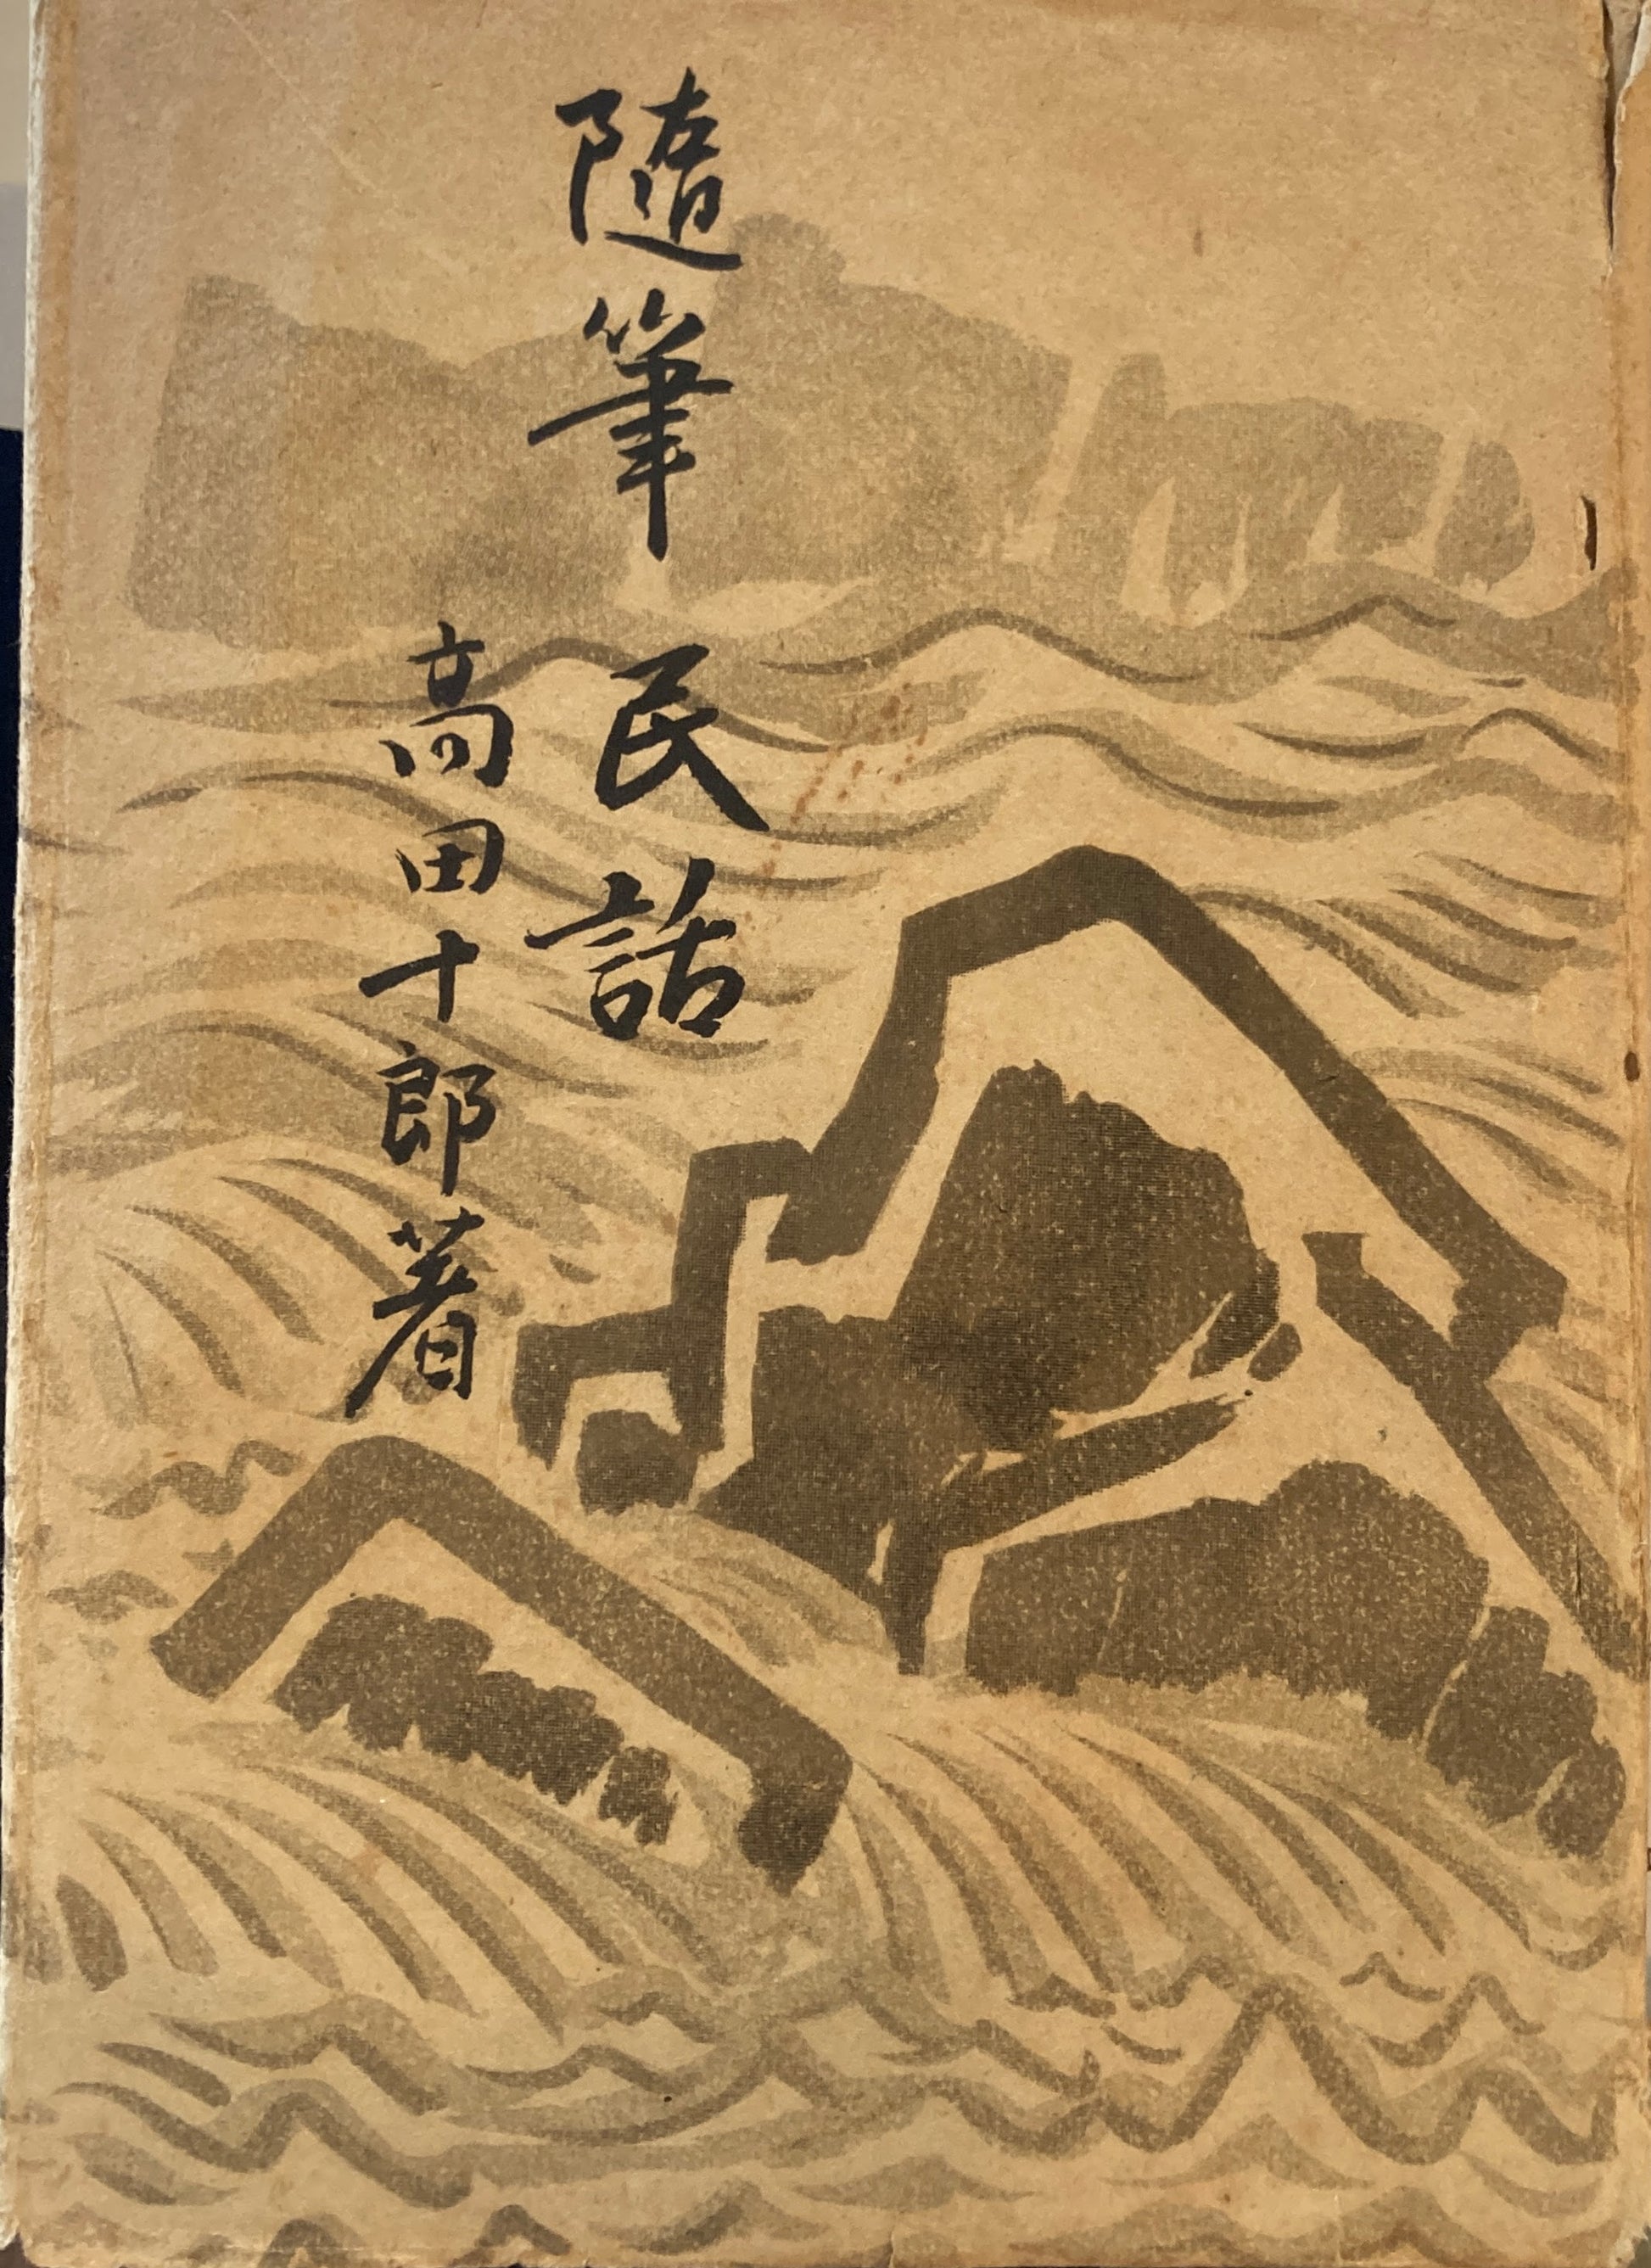 随筆 民話
高田十郎著